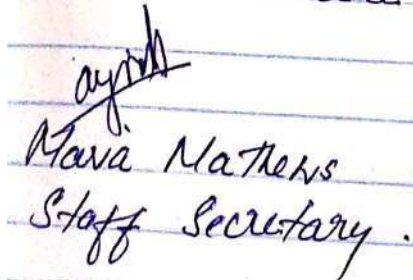 Mava Mathews
Staff Secretary.